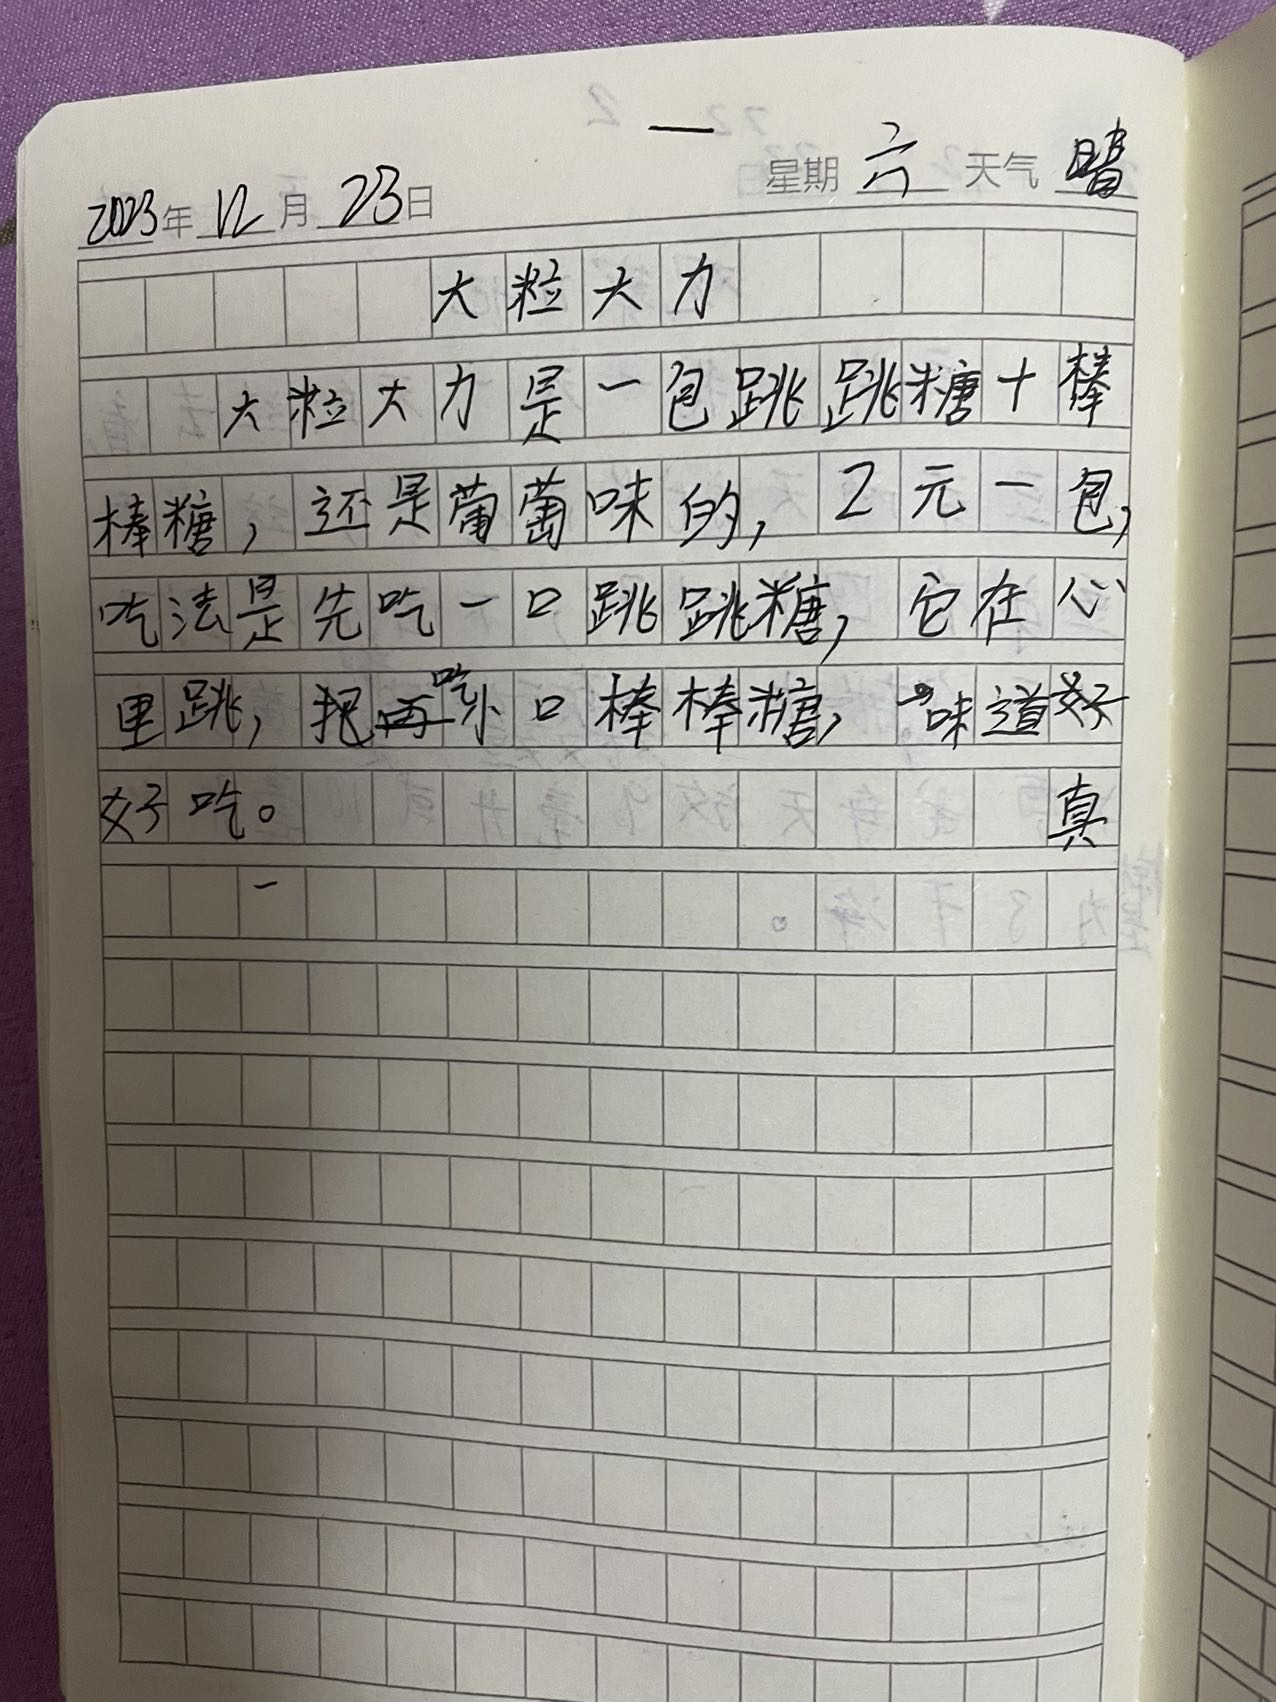 2023年12月23日 星期六 天气晴
大粒大力
大粒大力是一包跳跳糖+棒
棒糖，还是葡萄味的，2元一包，
吃法是先吃一口跳跳糖，它在心
里跳，把再吃小口棒棒糖，味道好
好吃。 真